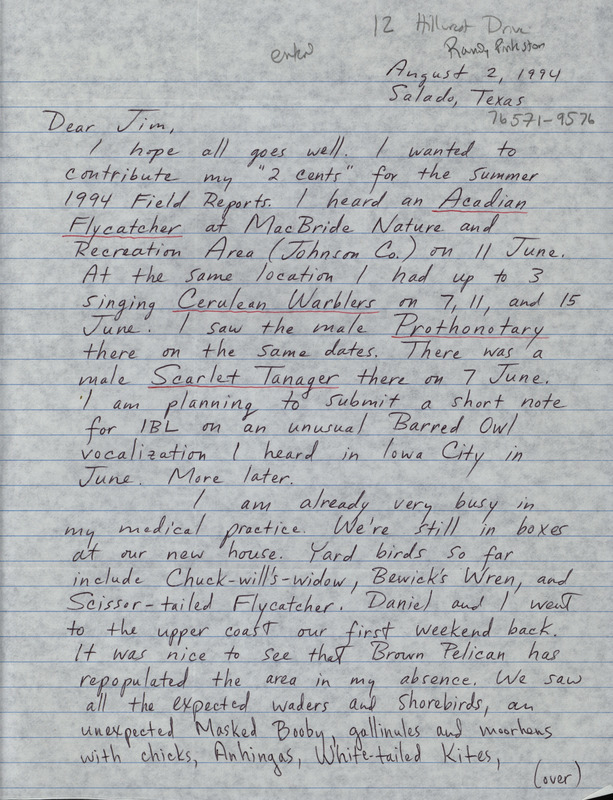 12 Hillcrest Drive
Randy Pinkston
August 2, 1994
Salado, Texas
76571-9576
Dear Jim,
I hope all goes well. I wanted to
contribute my "2 cents" for the summer
1994 Field Reports. I heard an Acadian
Flycatcher at MacBride Nature and
Recreation Area (Johnson Co.) on 11 June.
At the same location I had up to 3
singing Cerulean Warblers on 7, 11, and 15
June. I saw the male Prothonotary
there on the same dates. There was a
male Scarlet Tanager there on 7 June.
I am planning to submit a short note
for IBL on an unusual Barred Owl
vocalization I heard in Iowa City in
June. More later.
I am already very busy in
my medical practice. We're still in boxes
at our new house. Yard birds so far
include Chuck-will's-widow, Bewick's Wren, and
Scissor-tailed Flycatcher. Daniel and I went
to the upper coast our first weekend back.
It was nice to see that Brown Pelican has
repopulated the area in my absence. We saw
all the expected waders and shorebirds, an
unexpected Masked Booby, gallinules and moorhens
with chicks, Anhingas, White-tailed Kites,
(over)